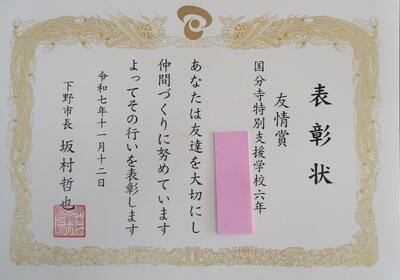 表彰状
友情賞
国分寺特別支援学校六年
あなたは友達を大切にし
仲間づくりに努めています
よってその行いを表彰します
令和七年十一月十二日
下野市長 坂村哲也